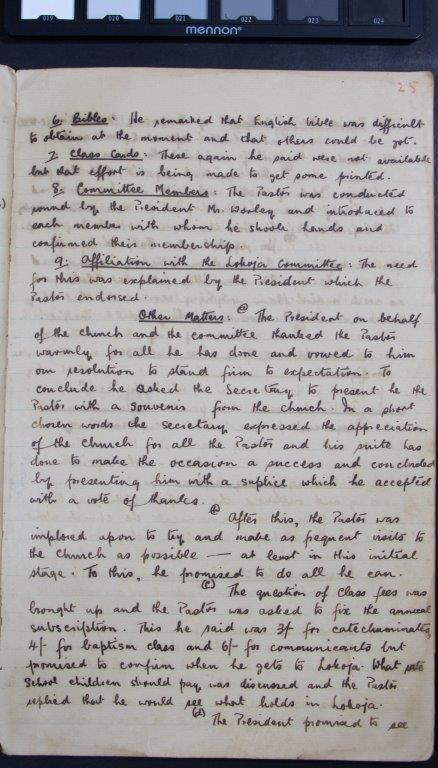 019 020 021 022 023 024
mennon
25
6. Bibles: He remarked that English bible was difficult
to obtain at the moment and that others could be got.
7. Class Cards: These again he said were not available
but that effort is being made to get some printed.
8. Committee Members: The Pastor was conducted
round by the President Mr. Worley and introduced to
each member with whom he shook hands and
confirmed their membership.
9. Affiliation with the Lokoja Committee: The need
for this was explained by the President which the
Pastor endorsed.
Other Matters: (a) The President on behalf
of the church and the committee thanked the Pastor
warmly for all he has done and vowed to him
our resolution to stand firm to expectation. To
conclude he asked the Secretary to present he the
Pastor with a souvenir from the church. In a short
chosen words the secretary expressed the appreciation
of the church for all the Pastor and his suite has
done to make the occasion a success and concluded
by presenting him with a suplice which he accepted
with a vote of thanks.
(b) After this, the Pastor was
implored upon to try and make as fequent visits to
the church as possible — at least in this initial
stage. To this, he promised to do all he can.
(c) The question of class fees was
brought up and the Pastor was asked to fix the annual
subscription. This he said was 3/- for catechuminates,
4/- for baptism class and 6/- for communicants but
promised to confirm when he gets to Lokoja. What rate
school children should pay was discussed and the Pastor
replied that he would see what holds in Lokoja.
(d) The President promised to see